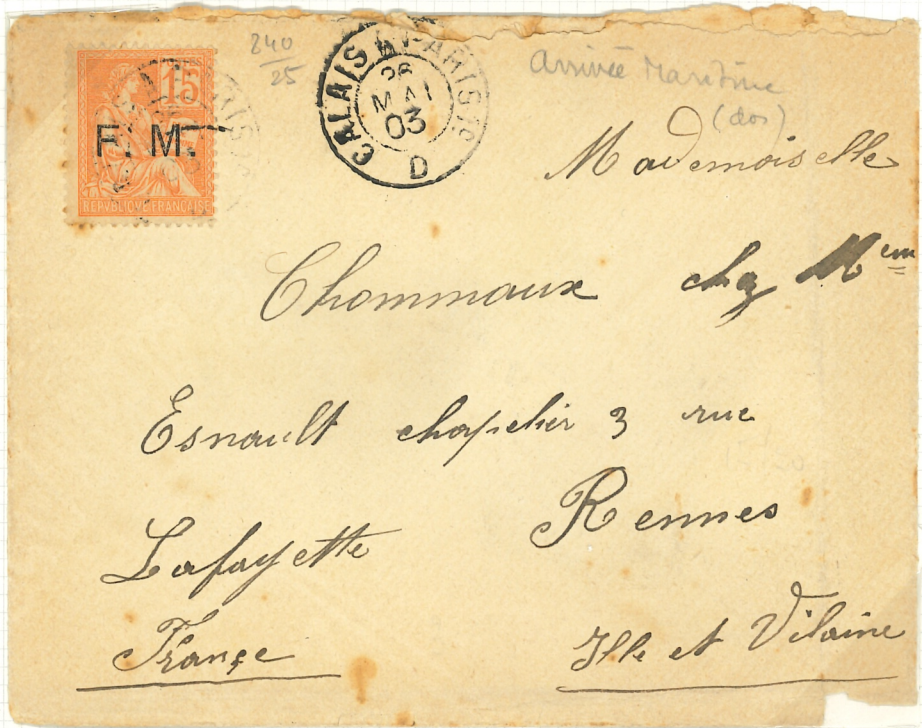 15
F. M.
REPVBLIQVE FRANÇAISE
240
25
CALAIS A PARIS
26
MAI
03
D
Arrivée Maritime
(dos)
Mademoiselle
Chommaux chez Mem
Esnault chapelier 3 rue
Lafayette Rennes
France Ille et Vilaine